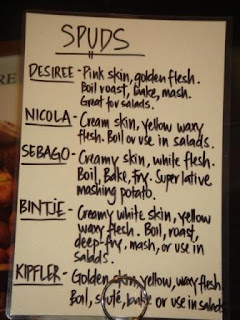 SPUDS
DESIREE - Pink skin, golden flesh.
Boil roast, bake, mash.
Great for salads.
NICOLA - Cream skin, yellow waxy
flesh. Boil or use in salads.
SEBAGO - Creamy skin, white flesh.
Boil, Bake, fry. Superlative
mashing potato.
BINTJE - Creamy white skin, yellow
waxy flesh. Boil, roast,
deep-fry, mash, or use in
salads.
KIPFLER - Golden skin, yellow, waxy flesh
Boil, sauté, bake or use in salads
RE